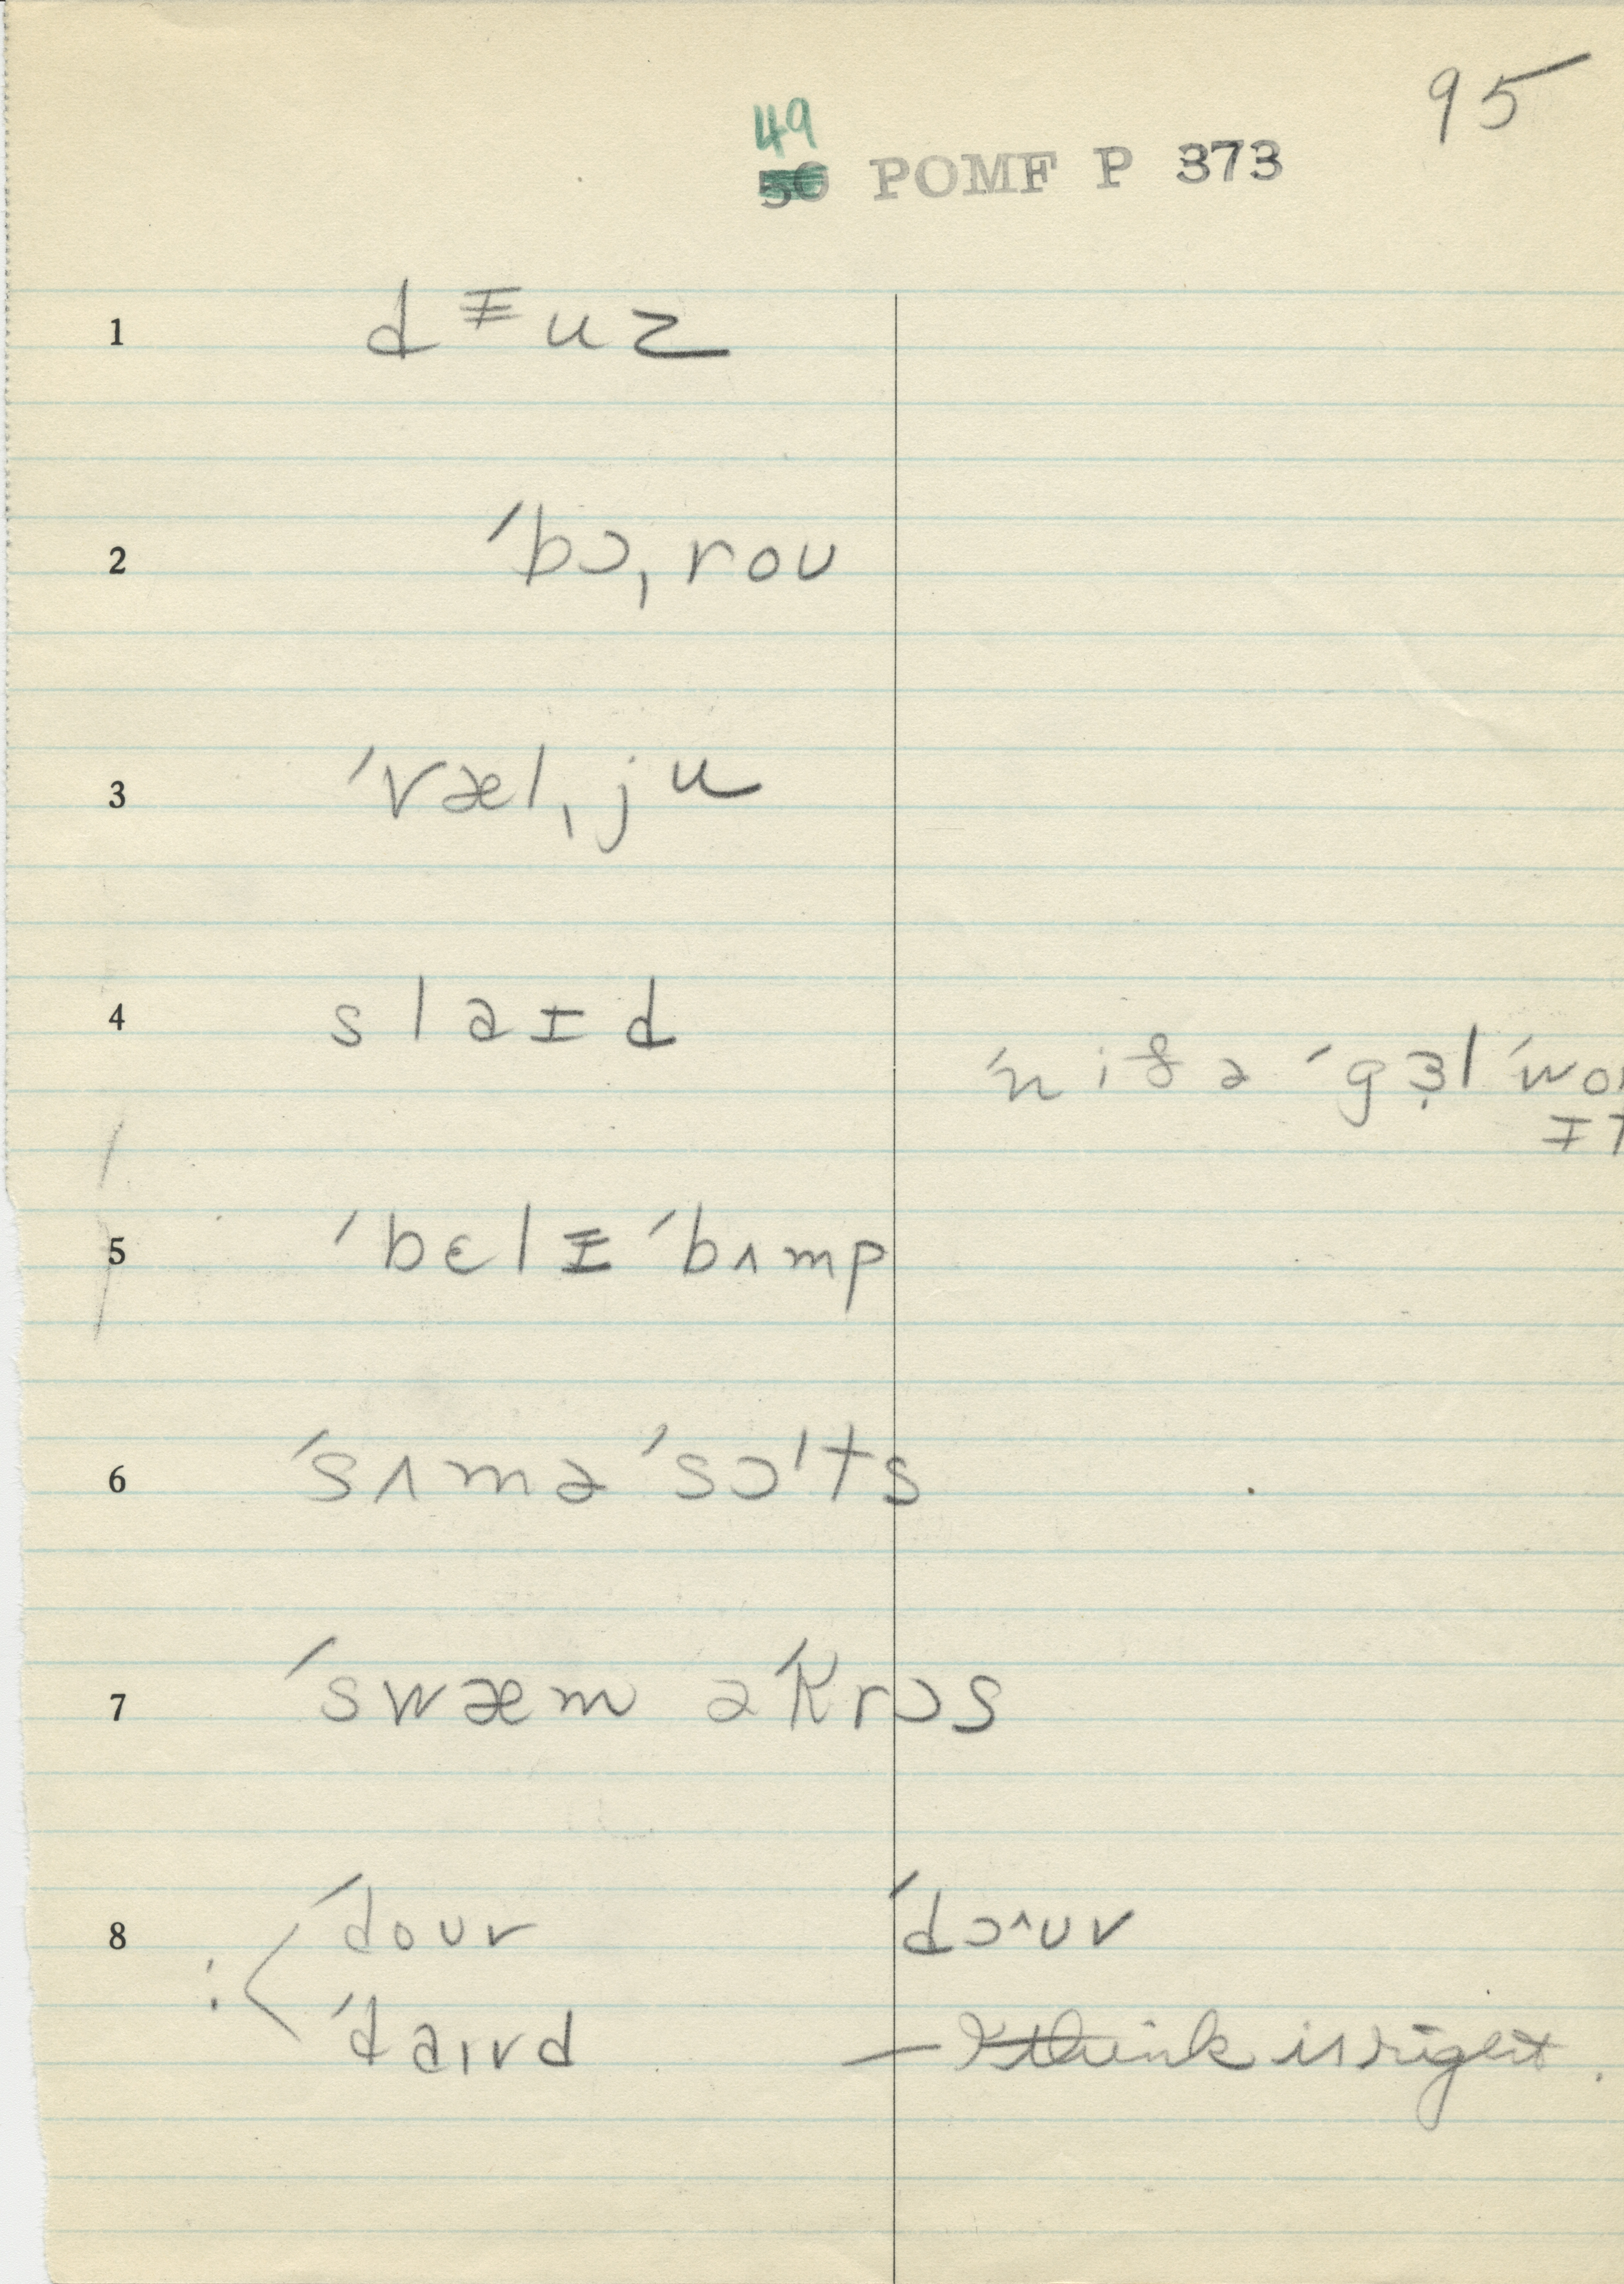 95
49
50 POMF P 373
1 dᵻuz
2 ˈbɔˌroʊ
3 ˈvælˌju
4 slaɪd
ˈn if ə ˈgɜl ˈwo
5 ˈbɛlᵻ ˈbʌmp
6 ˈsʌmə ˈsɔˈts
7 ˈswæm əˈkrɔs
8 ˈdoʊr ˈdɔ^ʊr
: ˈdaɪvd — I think is right.